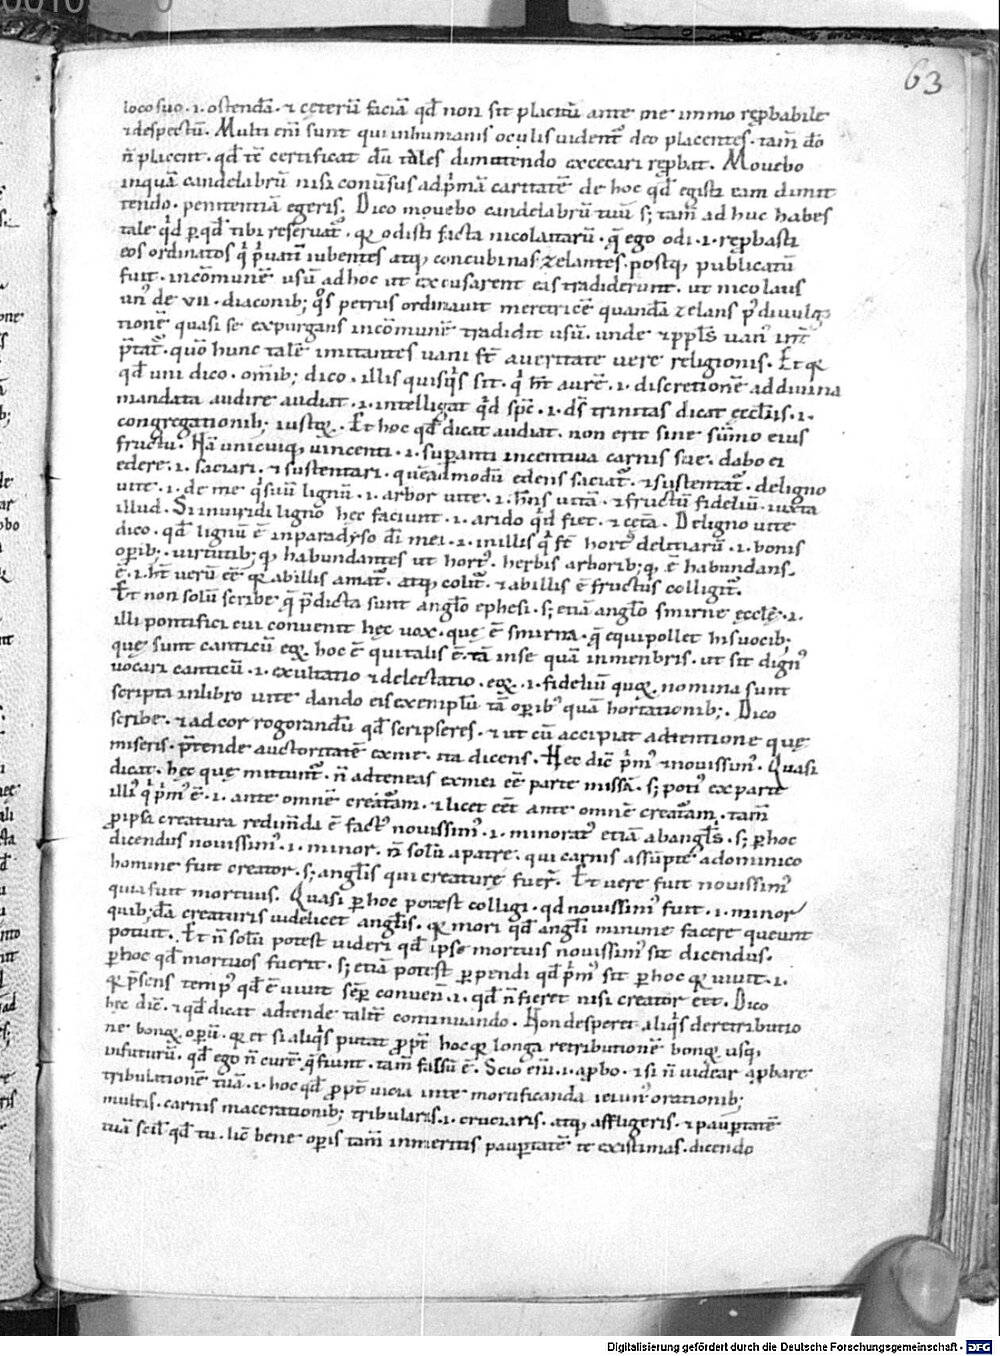 63
loco suo .i. ostendā. ⁊ ceterū faciā qđ non sit placitū ante me immo rep̱babile
⁊ despectū. Multi eni sunt qui inhumanis oculis uident᷑ deo placentes. tam̄ dō
n̄ placent. qđ te certificat dū tales dimittendo excecari rep̱bat. Mouebo
inquā candelabrū nisi conūsus ad pͥmā caritatē de hoc qđ egisti eam dimit
tendo. penitentiā egeris. Dico mouebo candelabrū tuū s; tam̄ ad huc habes
tale qͥd ꝑ qđ tibi reseruat᷑. qꝛ odisti facta nicolaitarū. q̄ ego odi .i. rep̱basti
eos ordinatos qͥ pͥuatī iubentes atq, concubinas zelantes. postq, publicatū
fuit. incōmunē usū ad hoc ut excusarent eas tradiderunt. ut nicolaus
un᷒ de vii. diaconib; q̊s petrus ordinauit meretricē quandā zelans ꝓ diuulga
tionē quasi se expurgans incōmunē tradidit usū. unde ⁊ ppl̄s uan᷒ int̄
p̄tat᷑. quō hunc talē imitantes uani st̄ a ueritate uere religionis. Et qꝛ
qđ uni dico. omīb; dico. illis quisqͥs sit. qͥ ht̄ aurē .i. discretionē ad diuina
mandata audire audiat .i. intelligat qͥd sp̄c .i. ds̄ trinitas dicat eccl̄iis .i.
congregationib; iustoꝝ. Et hoc qđ dicat audiat. non erit sine sūmo eius
fructu. Nā unicuiq, uincenti .i. suꝑanti incentiua carnis sue. dabo ei
edere .i. saciari. ⁊ sustentari. quēadmodū edens saciat᷑. ⁊ sustentat᷑. de ligno
uite .i. de me qͥ sum lignū .i. arbor uite .i. hn̄s uitā. ⁊ fructū fideliū. iuxta
illud. Si in uiridi ligno hec faciunt .i. arido qͥd fiet. ⁊ cet̄a. De ligno uite
dico. qđ lignū ē in paradyso dī mei .i. in illis qͥ st̄ hort᷒ delitiarū .i. bonis
oꝑib;. uirtutib; q, habundantes ut hort᷒. herbis arborib; q, ē habundans.
ē .i. ht̄ uerū eē qꝛ ab illis amat᷑. atq, colit᷑. ⁊ ab illis ē fructus colligit᷑.
Et non solū scribe q̄ p̄dicta sunt anglo ephesi. s; etiā anglo smirne eccle .i.
illi pontifici cui conuenit hec uox. que ē smirna. q̄ equipollet his uocib;
que sunt canticū eoꝝ hoc ē qui talis ē. tā in se quā in menbris. ut sit dign᷒
uocari canticū .i. exultatio ⁊ delectatio. eoꝝ .i. fideliū quoꝝ nomina sunt
scripta in libro uite dando eis exemplū tā oꝑib᷒ quā hortationib;. Dico
scribe. ⁊ ad cor rogorandū qđ scripseres. ⁊ ut cū accipiat adtentione que
miseris. p̄tende auctoritatē ex me. ita dicens. Hec dic̄ pͥm᷒ ⁊ nouissim᷒. Quasi
dicat. hec que mittunt᷑. n̄ adteneas ex mei eē parte missa. s; poti᷒ ex parte
illi᷒ qͥ pͥm᷒ ē .i. ante omnē creat̄am. ⁊ licet eēt ante omnē creat̄am. tam̄
ꝓ ipsa creatura redimēda ē fact᷒ nouissim᷒ .i. minorat᷒ etiā ab angl̄s. s; ꝑ hoc
dicendus nouissim᷒ .i. minor. n̄ solū a patre. qui carnis assūpte a dominico
homine fuit creator. s; anglis qui creature fuer̄. Et uere fuit nouissim᷒
quia fuit mortuus. Quasi ꝑ hoc potest colligi. qđ nouissim᷒ fuit .i. minor
quib;dā creaturis uidelicet anglis. qꝛ mori qđ angli minime facere queunt
potuit. Et n̄ solū potest uideri qđ ipse mortuis nouissim᷒ sit dicendus.
ꝑ hoc qđ mortuos fuerit. s; etiā potest ꝑpendi qđ pͥm᷒ sit ꝑ hoc qꝛ uiuit .i.
qꝛ p̄sens temp᷒ qđ ē uiuit seꝑ conuen̄ .i. qđ n̄ fieret nisi creator eēt. Dico
hec dic̄. ⁊ qđ dicat adtende talit̄ continuando. Non desperet aliqͥs de retributio
ne bonoꝝ oꝑū. qꝛ et si aliqͥs putat ꝓpt̄ hoc qꝛ longa retributionē bonoꝝ usq,
in futurū. qđ ego n̄ curē q̄ fiunt. tam̄ falsū ē. Scio eni .i. aꝓbo. ⁊ si n̄ uidear aꝓbare
tribulationē tuā .i. hoc qđ ꝓpt̄ uicia in te mortificanda ieiun᷒ orationib;
multis. carnis macerationib; tribularis .i. cruciaris. atq, affligeris. ⁊ pauꝑtatē
tuā scil̄ qđ tu. lic̄ bene oꝑis tam̄ in meritis pauꝑtatē te existimas. dicendo
Digitalisierung gefördert durch die Deutsche Forschungsgemeinschaft - DFG